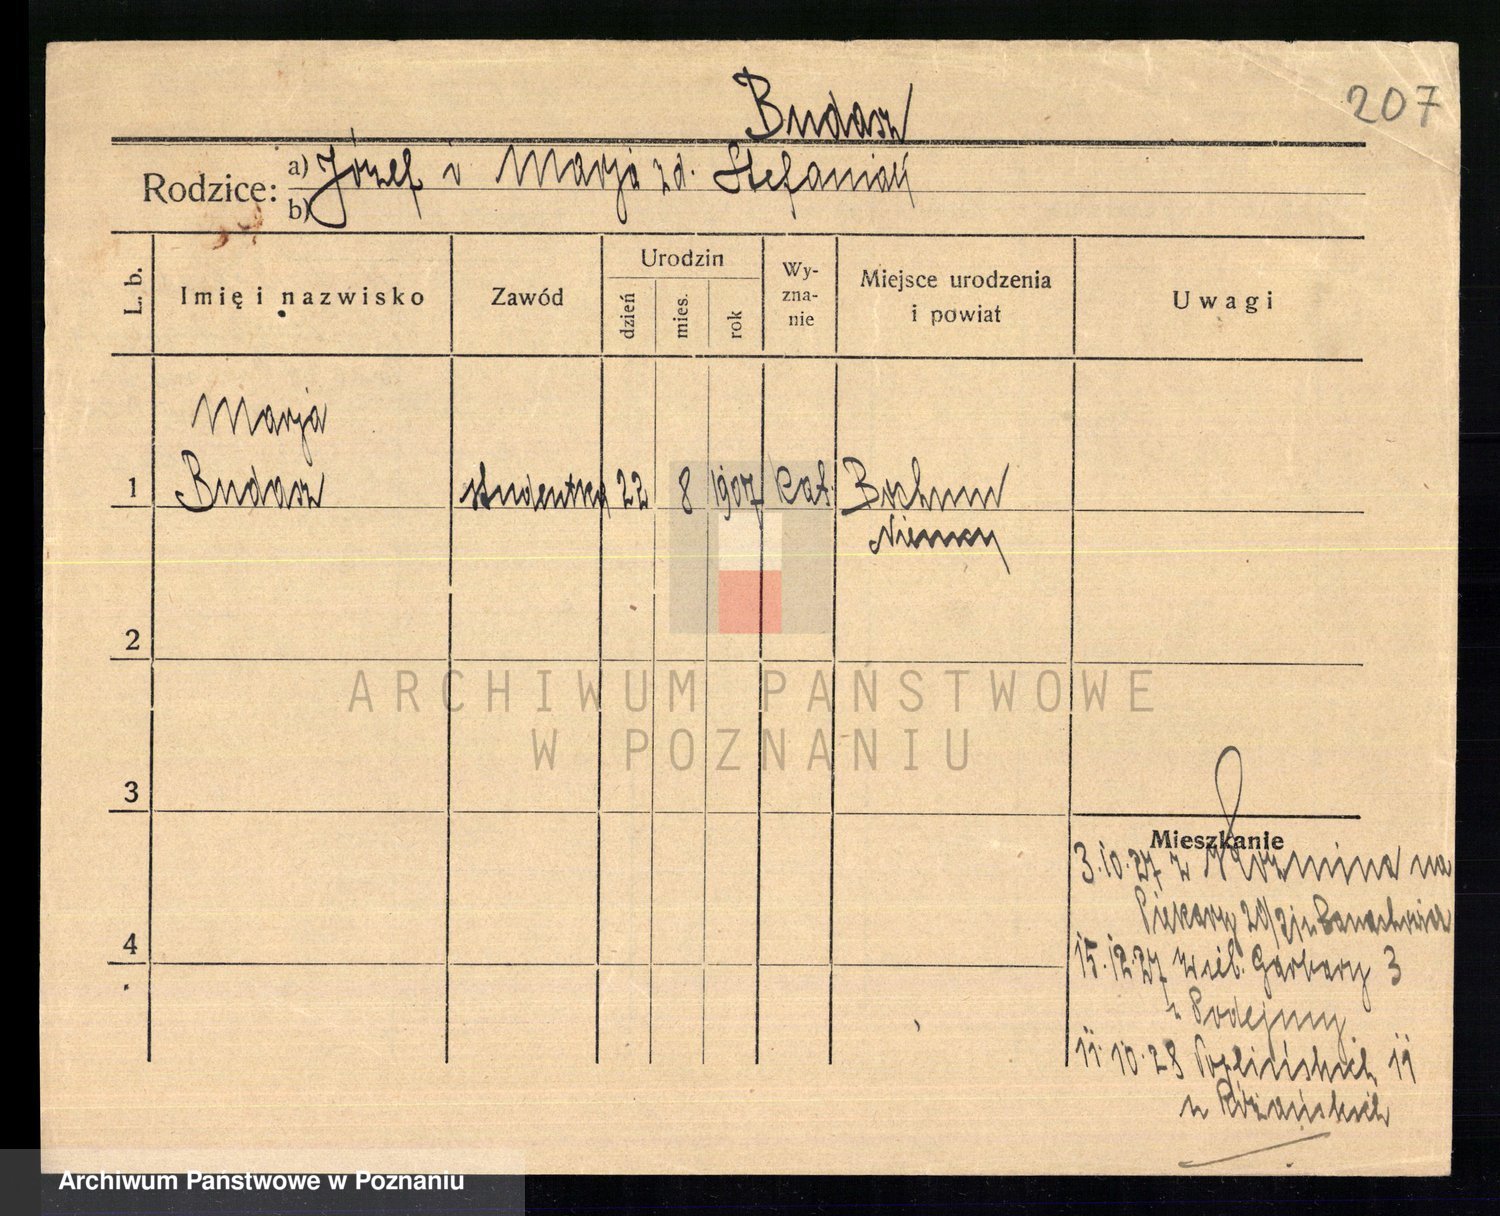 207
Budasz
Rodzice: a) Józef i Marja zd. Stefaniak
b)
L. b. Imię i nazwisko Zawód Urodzin dzień mies. rok Wyznanie Miejsce urodzenia i powiat Uwagi
Marja
1 Budasz studentka 22 8 1907 kat Bochum
Niemcy
2
ARCHIWUM PAŃSTWOWE
W POZNANIU
3
Mieszkanie
3.10.27 z Koźmina na
Piekary 20/21 u
4
15.12.27 Garbary 3
u
11.10.28 11
u Różańskich
Archiwum Państwowe w Poznaniu